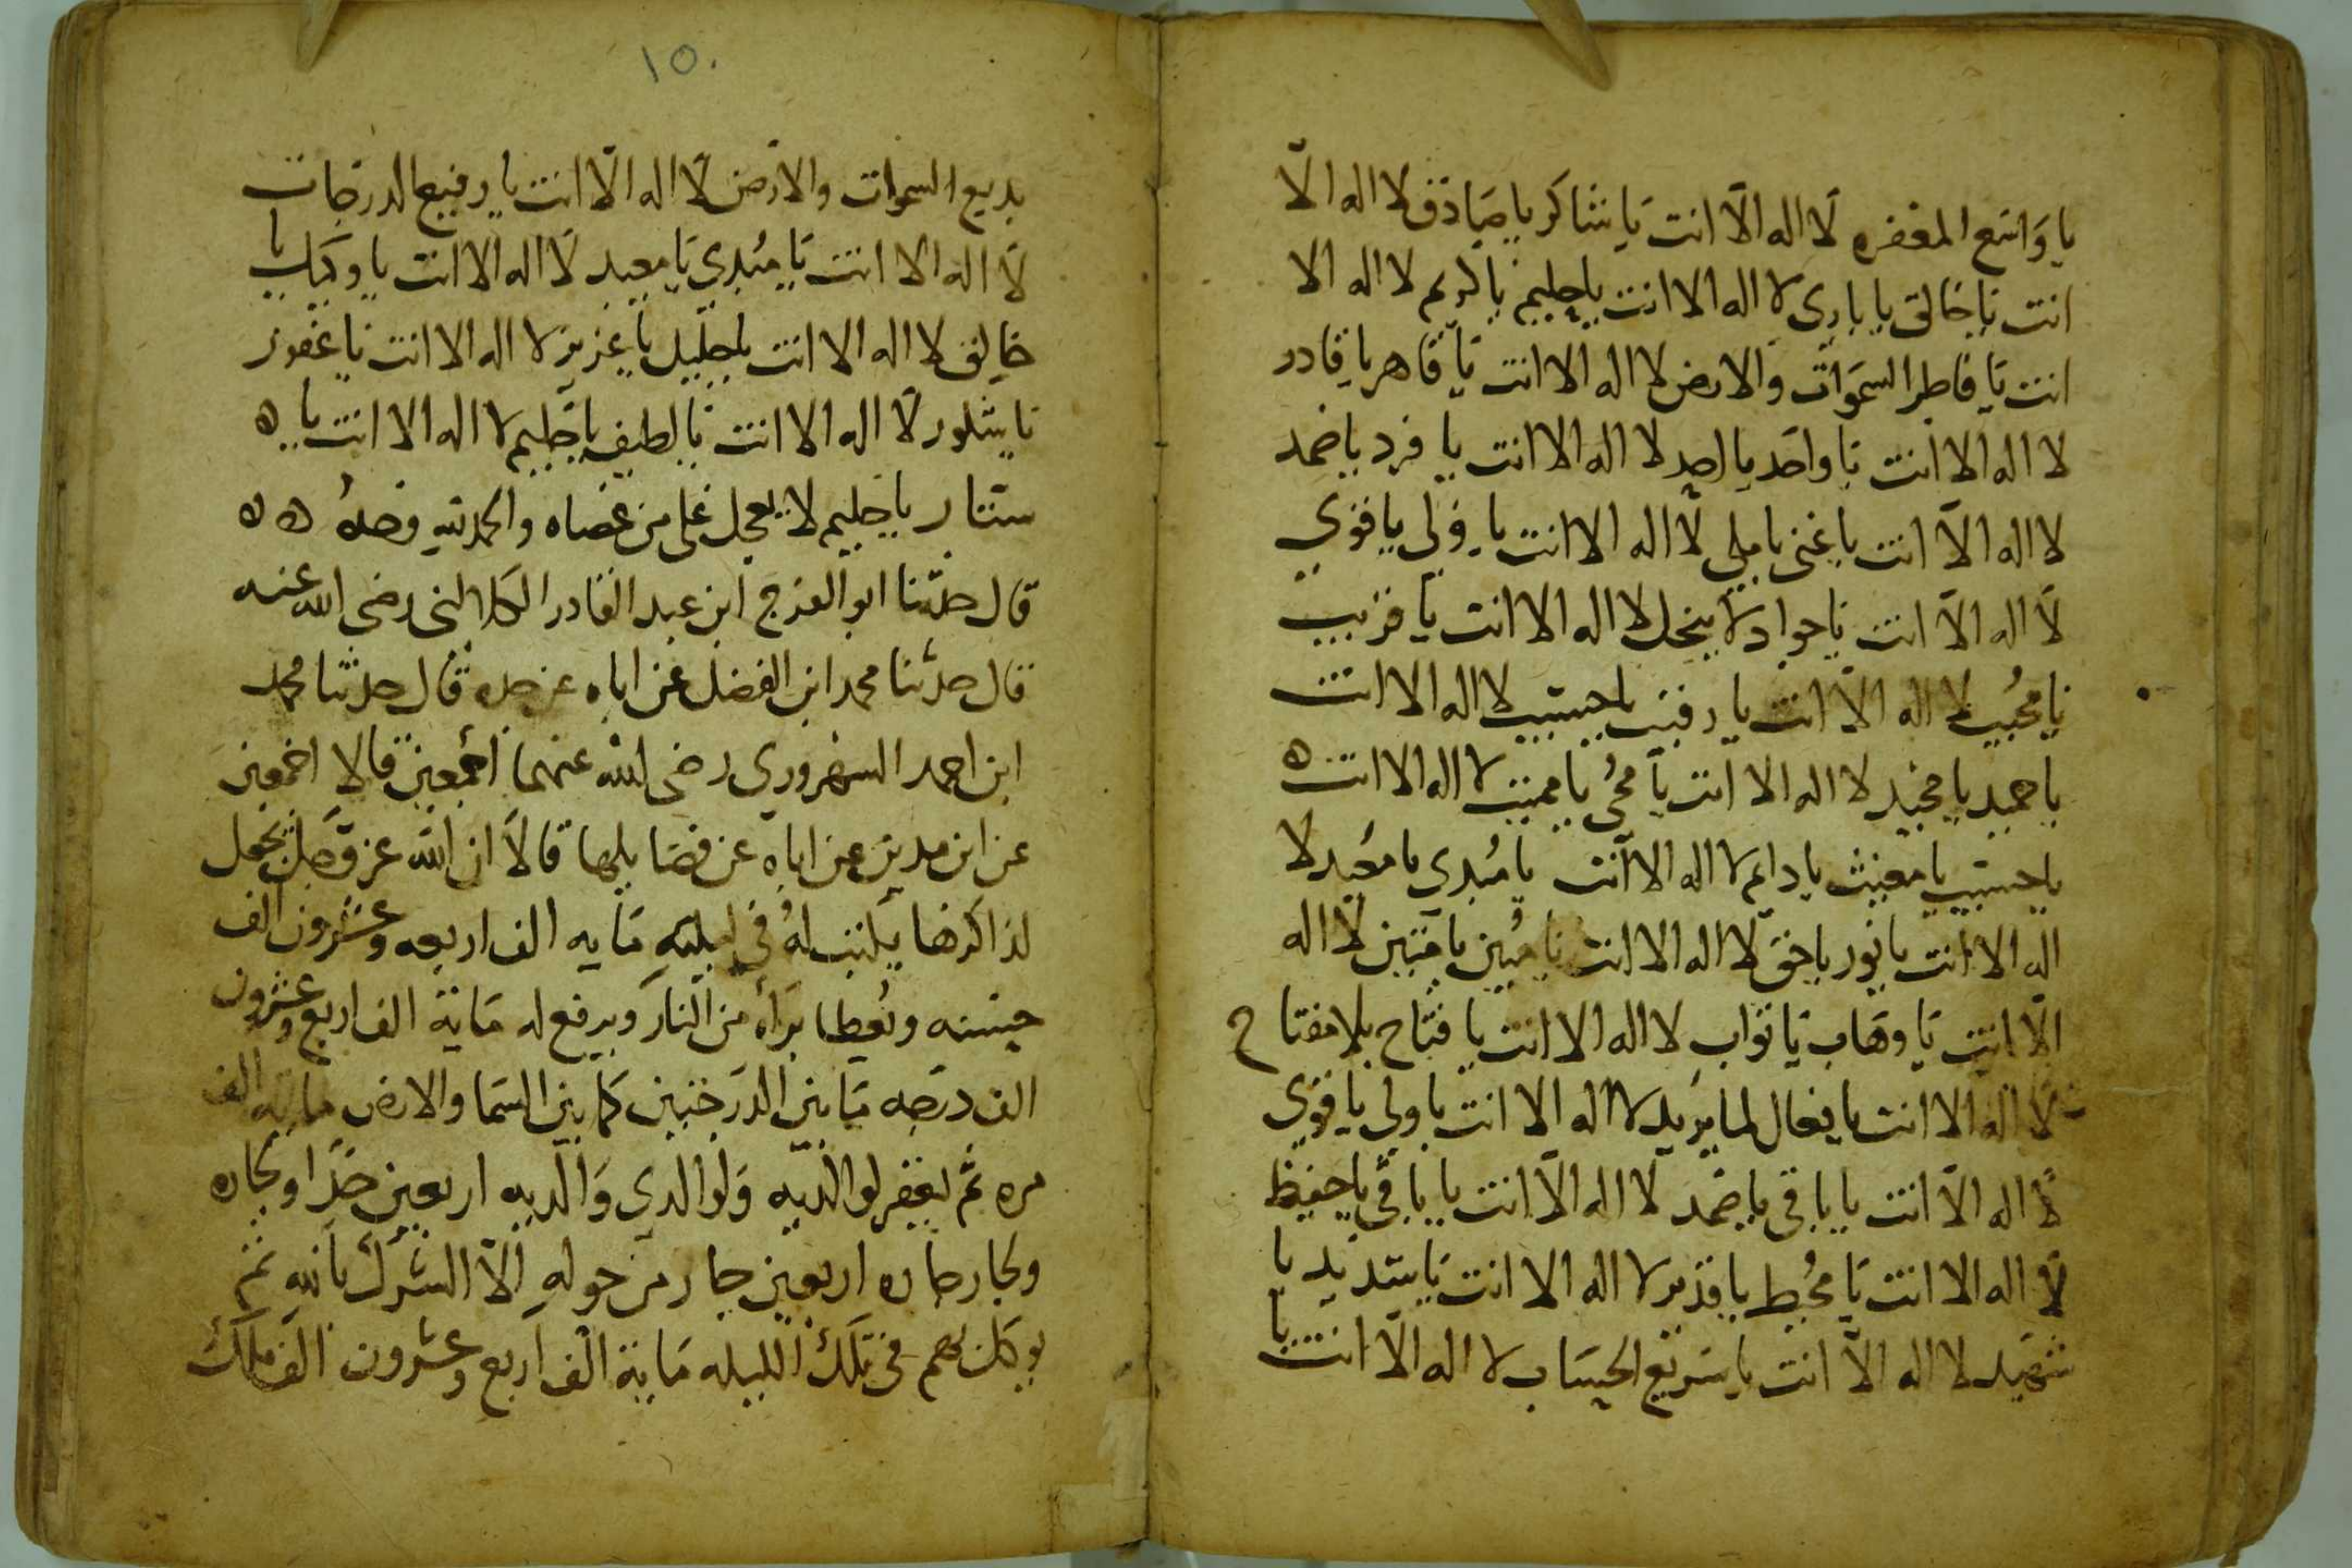 يا واسع المغفره لا اله الا انت يا شاكر يا صادق لا اله الا
انت يا خالق يا باري لا اله الا انت يا حليم يا كريم لا اله الا
انت يا فاطر السموات والارض لا اله الا انت يا قاهر يا قادر
لا اله الا انت يا واحد يا احد لا اله الا انت يا فرد يا صمد
لا اله الا انت يا غني يا ملي لا اله الا انت يا ولي يا قوي
لا اله الا انت يا جواد لا يبخل لا اله الا انت يا قريب
يا مجيب لا اله الا انت يا رقيب يا حسيب لا اله الا انت
يا حميد يا مجيد لا اله الا انت يا محي يا مميت لا اله الا انت ه
يا حسيب يا مغيث يا دايم لا اله الا انت يا مبدي يا معيد لا
اله الا انت يا نور يا حق لا اله الا انت يا مبين يا متين لا اله
الا انت يا وهاب يا تواب لا اله الا انت يا فتاح بلا مفتاح
لا اله الا انت يا فعال لما يريد لا اله الا انت يا ولي يا قوي
لا اله الا انت يا باقي يا صمد لا اله الا انت يا باقي يا حفيظ
لا اله الا انت يا محيط يا قدير لا اله الا انت يا شديد يا
شهيد لا اله الا انت يا سريع الحساب لا اله الا انت يا
١٥٠
بديع السموات والارض لا اله الا انت يا رفيع الدرجات
لا اله الا انت يا مبدي يا معيد لا اله الا انت يا وهاب يا
خالق لا اله الا انت يا جليل يا عزيز لا اله الا انت يا غفور
يا شكور لا اله الا انت يا لطيف يا حليم لا اله الا انت يا ه
ستار يا حليم لا يعجل على من عصاه والحمد لله وحده ه ه
قال حدثنا ابو الفرج ابن عبد القادر رضي الله عنه
قال حدثنا محمد ابن الفضل عن اباه عن جده قال حدثنا محمد
ابن احمد السهروردي رضي الله عنهما اجمعين قالا اجمعين
عن ابن مدين عن اباه عن فضايلها قالا ان الله عز وجل يجعل
لذاكرها يكتب له في ليلته مايه الف اربعه وعشرون الف
حسنه ويعطا براه من النار ويرفع له مايه الف اربع وعشرون
الف درجه ما بين الدرجتين كما بين السما والارض مايه الف
مره ثم يغفر لوالديه ولوالدي والديه اربعين جدا وبجاره
وبجار جاره اربعين جار من حوله الا الشرك بالله ثم
يوكل بهم في تلك الليله مايه الف اربع وعشرون الف ملك